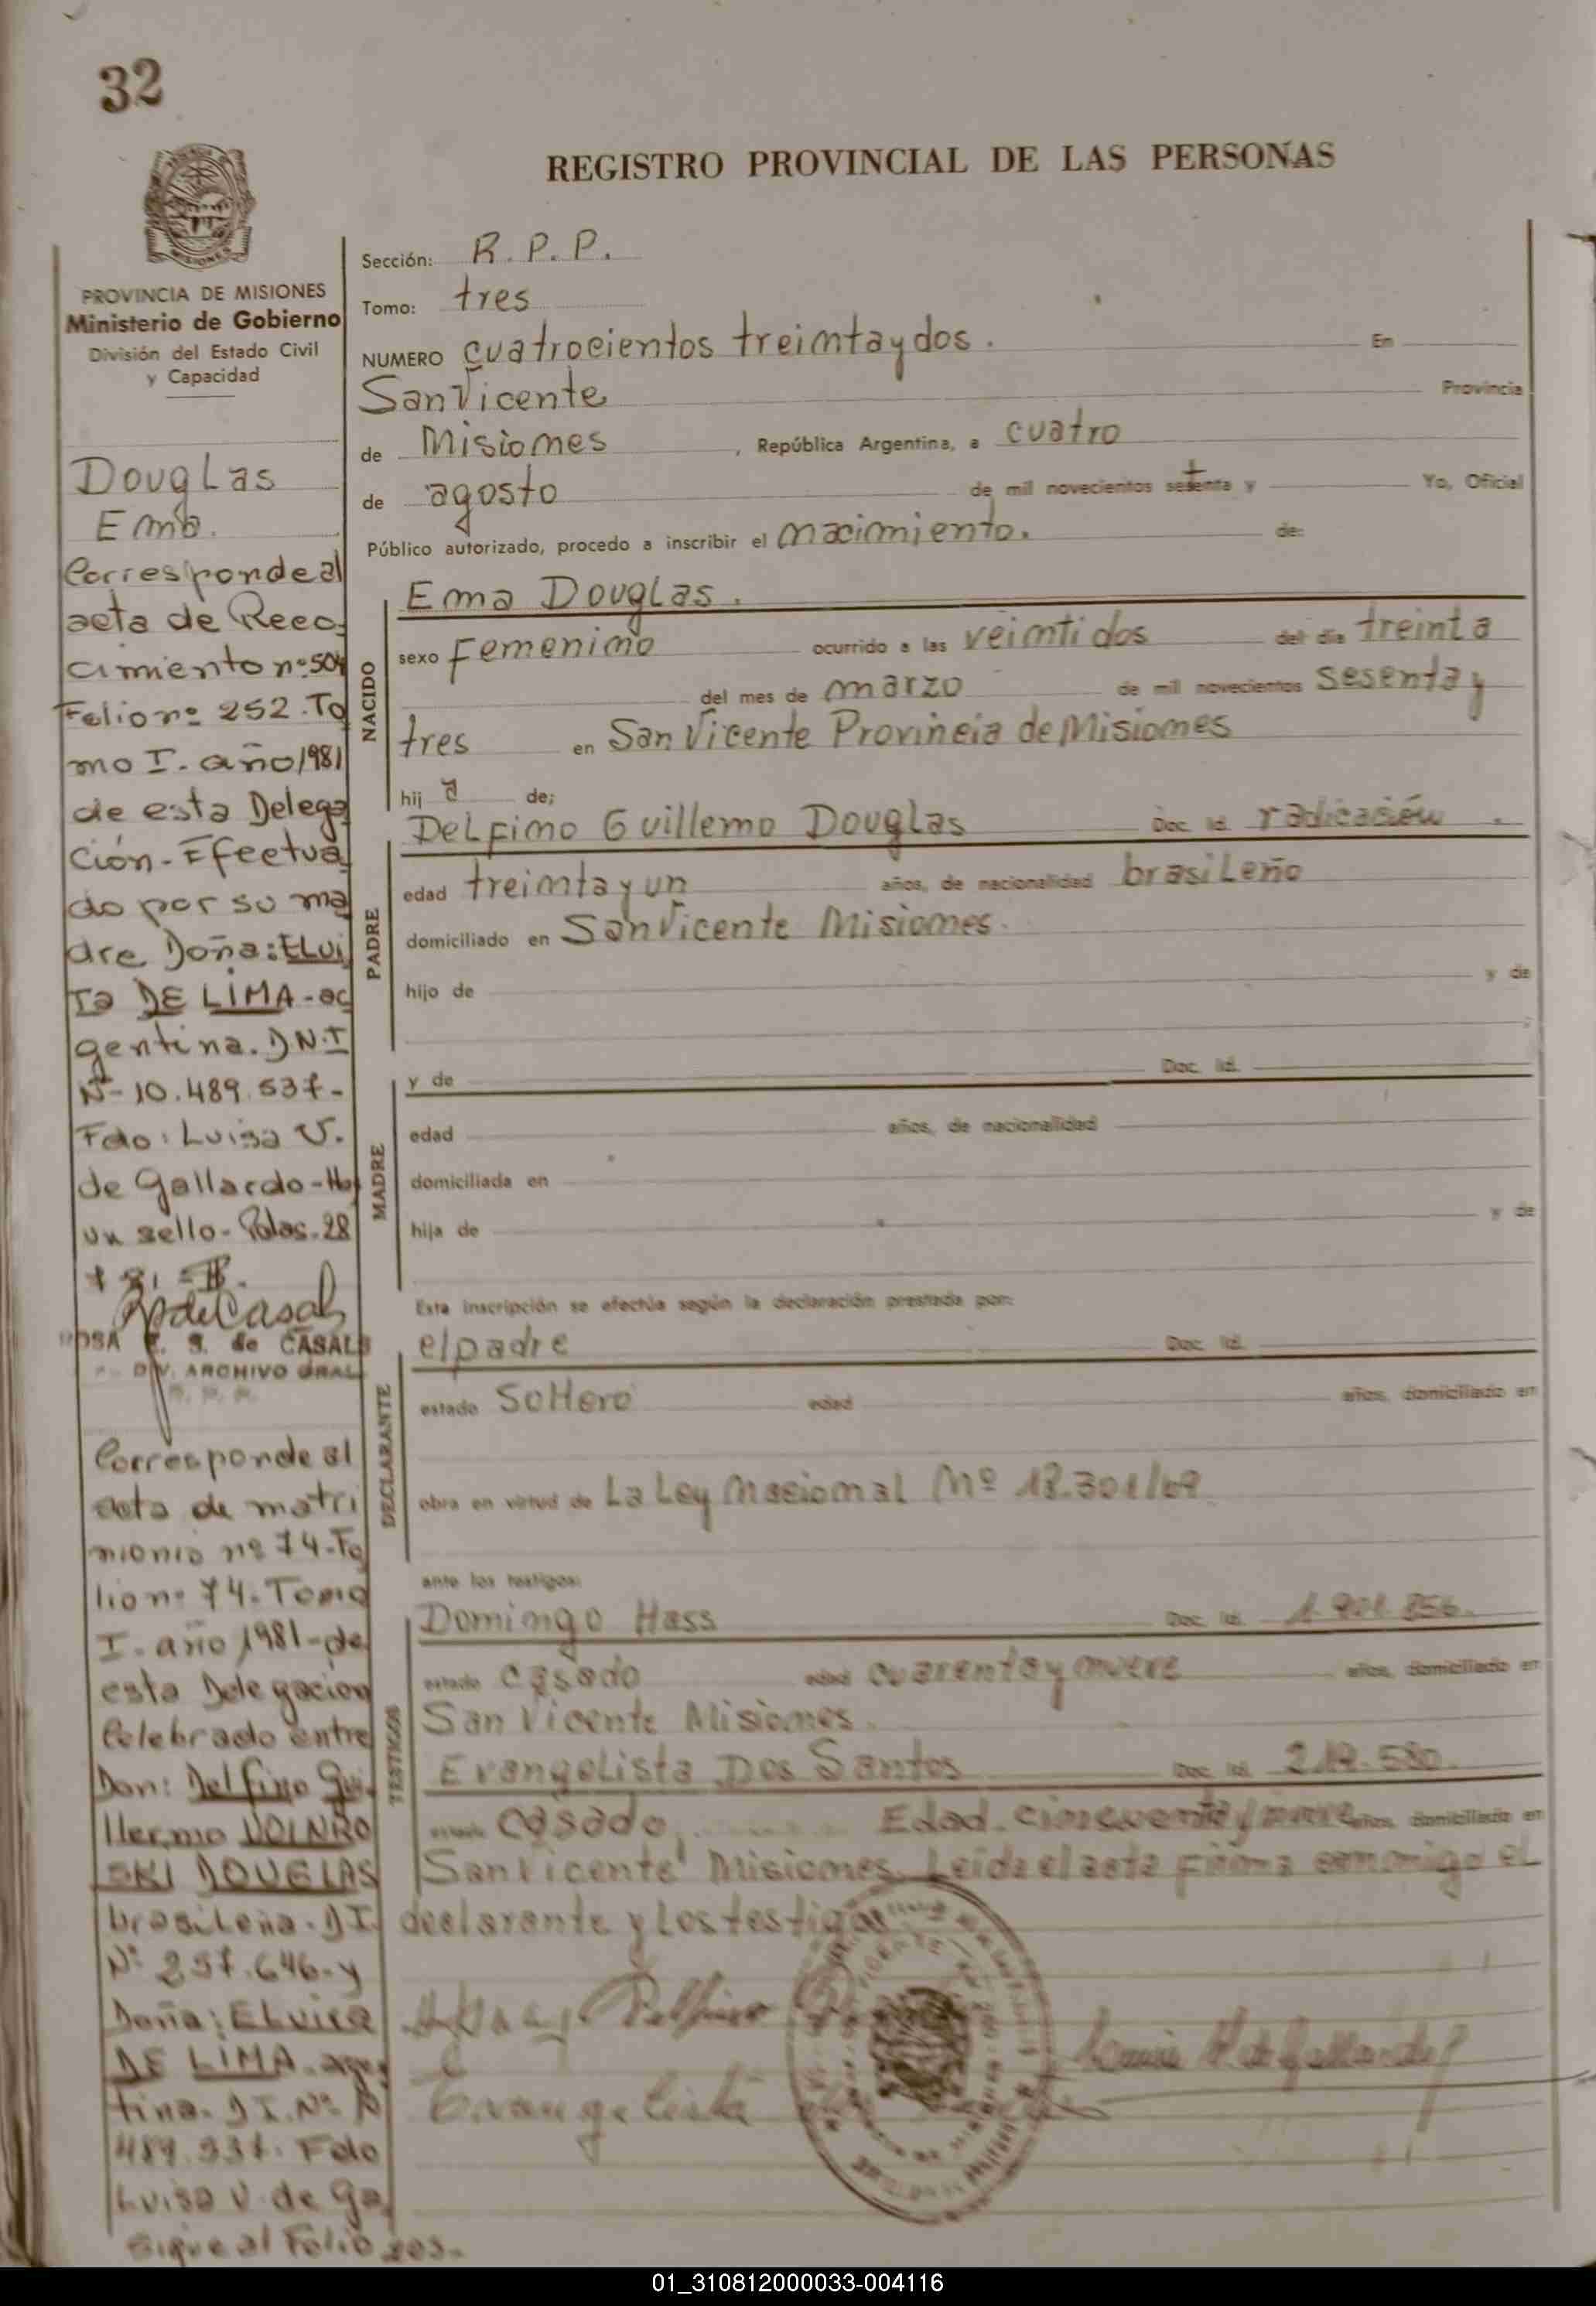 32
REGISTRO PROVINCIAL DE LAS PERSONAS
MISIONES
PROVINCIA DE MISIONES
Ministerio de Gobierno
División del Estado Civil
y Capacidad
Douglas
Ema.
Corresponde al
acta de Reco
cimiento nº 504
Folio nº 252. To
mo I. año 1981
de esta Delega
ción - Efectua
do por su ma
dre Doña: ELvi
ra DE LIMA - ar
gentina. D.N.I
Nº 10.489.537-
Fdo: Luisa V.
de Gallardo - Hay
un sello - Pdas. 28
RdeCasals
ROSA E. S. de CASALS
DIV. ARCHIVO GRAL
R. P. P.
Corresponde al
acta de matri
monio nº 74 - Fo
lio nº 74. Tomo
I. año 1981 - de
esta Delegación
Celebrado entre
Don: Delfino Gui
llermo
DOUGLAS
brasileña. DI
Nº 257.646 - y
Doña: ELvira
DE LIMA - argen
tina. DI. Nº 10
Fdo
Luisa V. de Ga
Sigue al Folio
Sección: R. P. P.
Tomo: tres
NUMERO cuatrocientos treinta y dos. En
San Vicente Provincia
de Misiones, República Argentina, a cuatro
de agosto de mil novecientos setenta y Yo, Oficial
Público autorizado, procedo a inscribir el nacimiento. de:
NACIDO
Ema Douglas.
sexo Femenino ocurrido a las veintidos del día treinta
del mes de marzo de mil novecientos sesenta y
tres en San Vicente Provincia de Misiones
hij a de;
PADRE
Delfino Guillemo Douglas Doc. Id. radicasión.
edad treinta y un años, de nacionalidad brasileño
domiciliado en San Vicente Misiones.
hijo de y de
MADRE
y de Doc. Id.
edad años, de nacionalidad
domiciliada en
hija de y de
Esta inscripción se efectúa según la declaración prestada por:
DECLARANTE
el padre Doc. Id.
estado Soltero edad años, domiciliado en
obra en virtud de La Ley Nacional Nº 18.301/69.
ante los testigos:
TESTIGOS
Domingo Hass Doc. Id. 1.901.856.
estado casado edad cuarenta y nueve años, domiciliado en
San Vicente Misiones.
Evangelista Dos Santos Doc. Id. 580.
estado casado, Edad. cincuenta y nueve años, domiciliado en
San Vicente Misiones. Leida el acta firma conmigo el
declarante y los testigos
Delfino
Evangelista
01_310812000033-004116